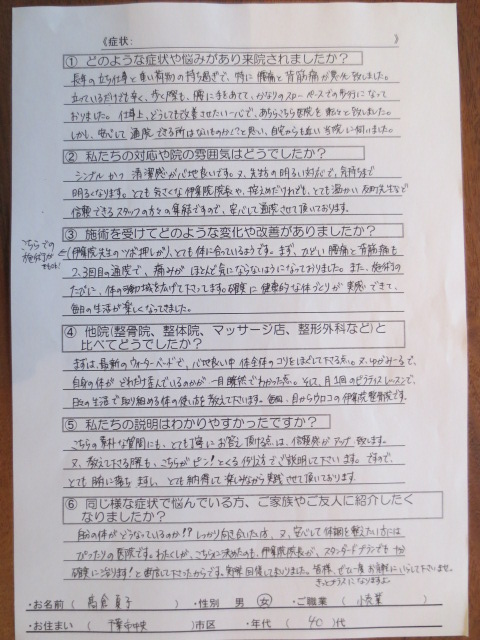 《症状：　》
① どのような症状や悩みがあり来院されましたか？
長年の立ち仕事と重い荷物の持ち過ぎで、特に腰痛と背筋痛が悪化致しました。
立っているだけでも辛く、歩く際も、腰に手をあてて、かなりのスローペースでの歩行になって
おりました。仕事上、どうしても改善させたい一心で、あちらこちら医院を転々と致しました。
しかし、安心して通院できる所はないものか？と思い、自宅からも近い当院に伺いました。
② 私たちの対応や院の雰囲気はどうでしたか？
シンプルかつ清潔感が心地良いです。又、先生の明るい対応で、気持まで
明るくなります。とても気さくな伊集院院長や、控えめだけれども、とても温かい
信頼できるスタッフの方々の笑顔ですので、安心して通院させて頂いております。
③ 施術を受けてどのような変化や改善がありましたか？
こちらでの
施術が
(伊集院先生のツボ押しが)、とても体に合っているようです。まず、ひどい腰痛と背筋痛も
2、3回目の通院で、痛みがほとんど気にならないようになっておりました。また、施術の
たびに、体の可動域を広げて下さってます。確実に健康的な体づくりが実感できて、
毎日の生活が楽しくなってきました。
④ 他院(整骨院、整体院、マッサージ店、整形外科など)と
比べてどうでしたか？
まずは、最新のウォーターベッドで、心地良い中、体全体のコリをほぐして下さる点。又、ゆがみーるで、
自身の体がどれだけ歪んでいるのかが一目瞭然でわかった点。そして、月1回のピラティスレッスンで、
日々の生活で取り組める体の使い方を教えて下さいます。毎回、目からウロコの伊集院整骨院です。
⑤ 私たちの説明はわかりやすかったですか？
こちらの素朴な質問にも、とても丁寧にお答え頂ける点は、信頼度がアップ致します。
又、教えて下さる際も、こちらがピン!とくる例え方でご説明して下さいます。ですので、
とても腑に落ちますし、とても納得して楽しみながら実践させて頂いております。
⑥ 同じ様な症状で悩んでいる方、ご家族やご友人に紹介したく
なりましたか？
自分の体がどうなっているのか!?しっかり向き合いたい方、又、安心して体調を整えたい方には
ぴったりの医院です。わたくしが、こちらに決めたのも、伊集院院長が、スタンダードプランでも十分
確実に治ります!と断言して下さったからです。実際回復してまいりました。皆様、ぜひ一度お気軽にいらして下さいませ。
きっとプラスになりますよ。
・お名前（　高倉 夏子　）・性別　男　女・ご職業（　接客業　）
・お住まい（　千葉市中央　）市区　・年代（　40　）代